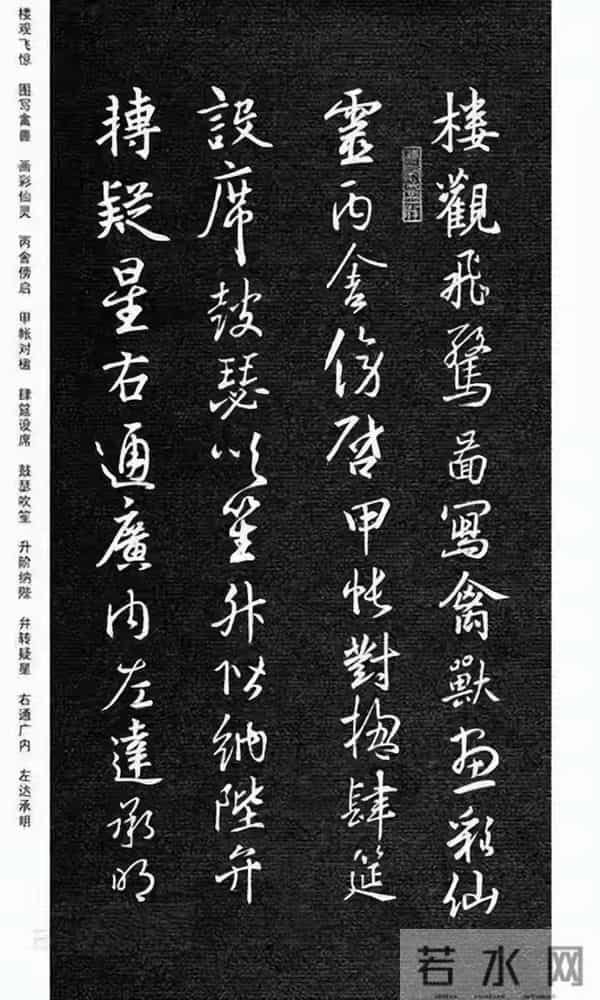 樓觀飛驚啚寫禽獸畫彩仙
靈丙舍傍啓甲帳對楹肆筵
設席鼓瑟吹笙升階納陛弁
轉疑星右通廣內左達承明
楼观飞惊 图写禽兽 画彩仙灵 丙舍傍启 甲帐对楹 肆筵设席 鼓瑟吹笙 升阶纳陛 弁转疑星 右通广内 左达承明
若水网